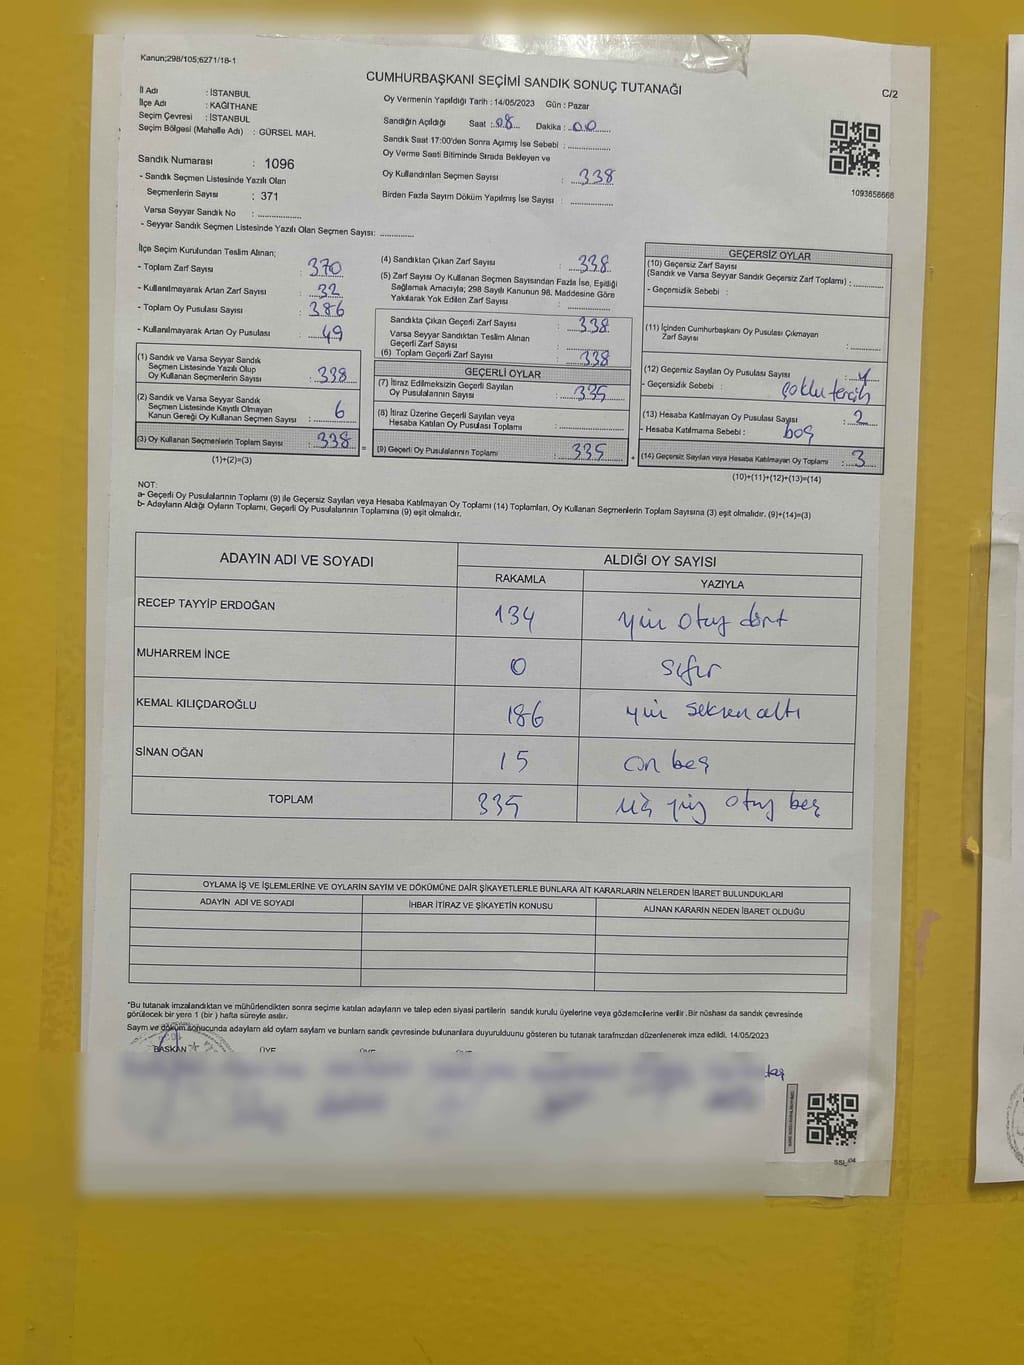 Kanun;298/105;6271/18-1
CUMHURBAŞKANI SEÇİMİ SANDIK SONUÇ TUTANAĞI
C/2
İl Adı : İSTANBUL
İlçe Adı : KAĞITHANE
Seçim Çevresi : İSTANBUL
Seçim Bölgesi (Mahalle Adı) : GÜRSEL MAH.
Sandık Numarası : 1096
- Sandık Seçmen Listesinde Yazılı Olan
Seçmenlerin Sayısı : 371
Varsa Seyyar Sandık No : ............
- Seyyar Sandık Seçmen Listesinde Yazılı Olan Seçmen Sayısı: ............
Oy Vermenin Yapıldığı Tarih : 14/05/2023 Gün : Pazar
Sandığın Açıldığı Saat : 08 Dakika : 00
Sandık Saat 17:00'den Sonra Açmış İse Sebebi : ............
Oy Verme Saati Bitiminde Sırada Bekleyen ve
Oy Kullandırılan Seçmen Sayısı : 338
Birden Fazla Sayım Döküm Yapılmış İse Sayısı : ............
1093656666
İlçe Seçim Kurulundan Teslim Alınan;
- Toplam Zarf Sayısı : 370
- Kullanılmayarak Artan Zarf Sayısı : 32
- Toplam Oy Pusulası Sayısı : 386
- Kullanılmayarak Artan Oy Pusulası : 49
(1) Sandık ve Varsa Seyyar Sandık
Seçmen Listesinde Yazılı Olup
Oy Kullanan Seçmenlerin Sayısı : 338
(2) Sandık ve Varsa Seyyar Sandık
Seçmen Listesinde Kayıtlı Olmayan
Kanun Gereği Oy Kullanan Seçmen Sayısı : 6
(3) Oy Kullanan Seçmenlerin Toplam Sayısı : 338 =
(1)+(2)=(3)
(4) Sandıktan Çıkan Zarf Sayısı : 338
(5) Zarf Sayısı Oy Kullanan Seçmen Sayısından Fazla İse, Eşitliği
Sağlamak Amacıyla; 298 Sayılı Kanunun 98. Maddesine Göre
Yakılarak Yok Edilen Zarf Sayısı : ............
Sandıkta Çıkan Geçerli Zarf Sayısı : 338
Varsa Seyyar Sandıktan Teslim Alınan
Geçerli Zarf Sayısı : ............
(6) Toplam Geçerli Zarf Sayısı : 338
GEÇERLİ OYLAR
(7) İtiraz Edilmeksizin Geçerli Sayılan
Oy Pusulalarının Sayısı : 335
(8) İtiraz Üzerine Geçerli Sayılan veya
Hesaba Katılan Oy Pusulası Toplamı : ............
(9) Geçerli Oy Pusulalarının Toplamı : 335 +
GEÇERSİZ OYLAR
(10) Geçersiz Zarf Sayısı
(Sandık ve Varsa Seyyar Sandık Geçersiz Zarf Toplamı) : ............
- Geçersizlik Sebebi :
(11) İçinden Cumhurbaşkanı Oy Pusulası Çıkmayan
Zarf Sayısı : ............
(12) Geçersiz Sayılan Oy Pusulası Sayısı : 1
- Geçersizlik Sebebi : çoklu tercih
(13) Hesaba Katılmayan Oy Pusulası Sayısı : 2
- Hesaba Katılmama Sebebi : boş
(14) Geçersiz Sayılan veya Hesaba Katılmayan Oy Toplamı : 3
(10)+(11)+(12)+(13)=(14)
NOT:
a- Geçerli Oy Pusulalarının Toplamı (9) ile Geçersiz Sayılan veya Hesaba Katılmayan Oy Toplamı (14) Toplamları, Oy Kullanan Seçmenlerin Toplam Sayısına (3) eşit olmalıdır. (9)+(14)=(3)
b- Adayların Aldığı Oyların Toplamı, Geçerli Oy Pusulalarının Toplamına (9) eşit olmalıdır.
ADAYIN ADI VE SOYADI ALDIĞI OY SAYISI
RAKAMLA YAZIYLA
RECEP TAYYİP ERDOĞAN 134 yüz otuz dört
MUHARREM İNCE 0 sıfır
KEMAL KILIÇDAROĞLU 186 yüz seksen altı
SİNAN OĞAN 15 on beş
TOPLAM 335 üç yüz otuz beş
OYLAMA İŞ VE İŞLEMLERİNE VE OYLARIN SAYIM VE DÖKÜMÜNE DAİR ŞİKAYETLERLE BUNLARA AİT KARARLARIN NELERDEN İBARET BULUNDUKLARI
ADAYIN ADI VE SOYADI İHBAR İTİRAZ VE ŞİKAYETİN KONUSU ALINAN KARARIN NEDEN İBARET OLDUĞU
*Bu tutanak imzalandıktan ve mühürlendikten sonra seçime katılan adayların ve talep eden siyasi partilerin sandık kurulu üyelerine veya gözlemcilerine verilir .Bir nüshası da sandık çevresinde
görülecek bir yere 1 (bir ) hafta süreyle asılır.
Sayım ve döküm sonucunda adayların ald oyların sayların ve bunların sandk çevresinde bulunanlara duyurulduunu gösteren bu tutanak tarafmızdan düzenlenerek imza edildi. 14/05/2023
BAŞKAN ÜYE ÜYE ÜYE